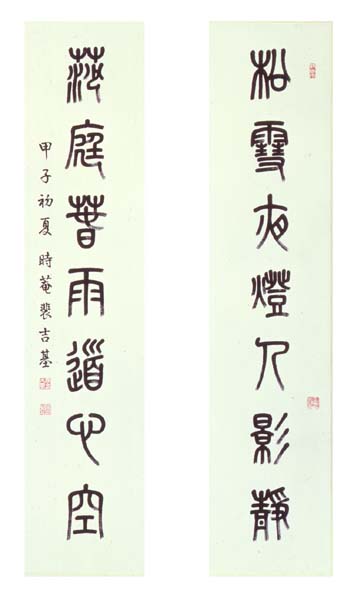 松雪夜燈人影靜
莎庭春雨道心空
甲子初夏 時菴裴吉基